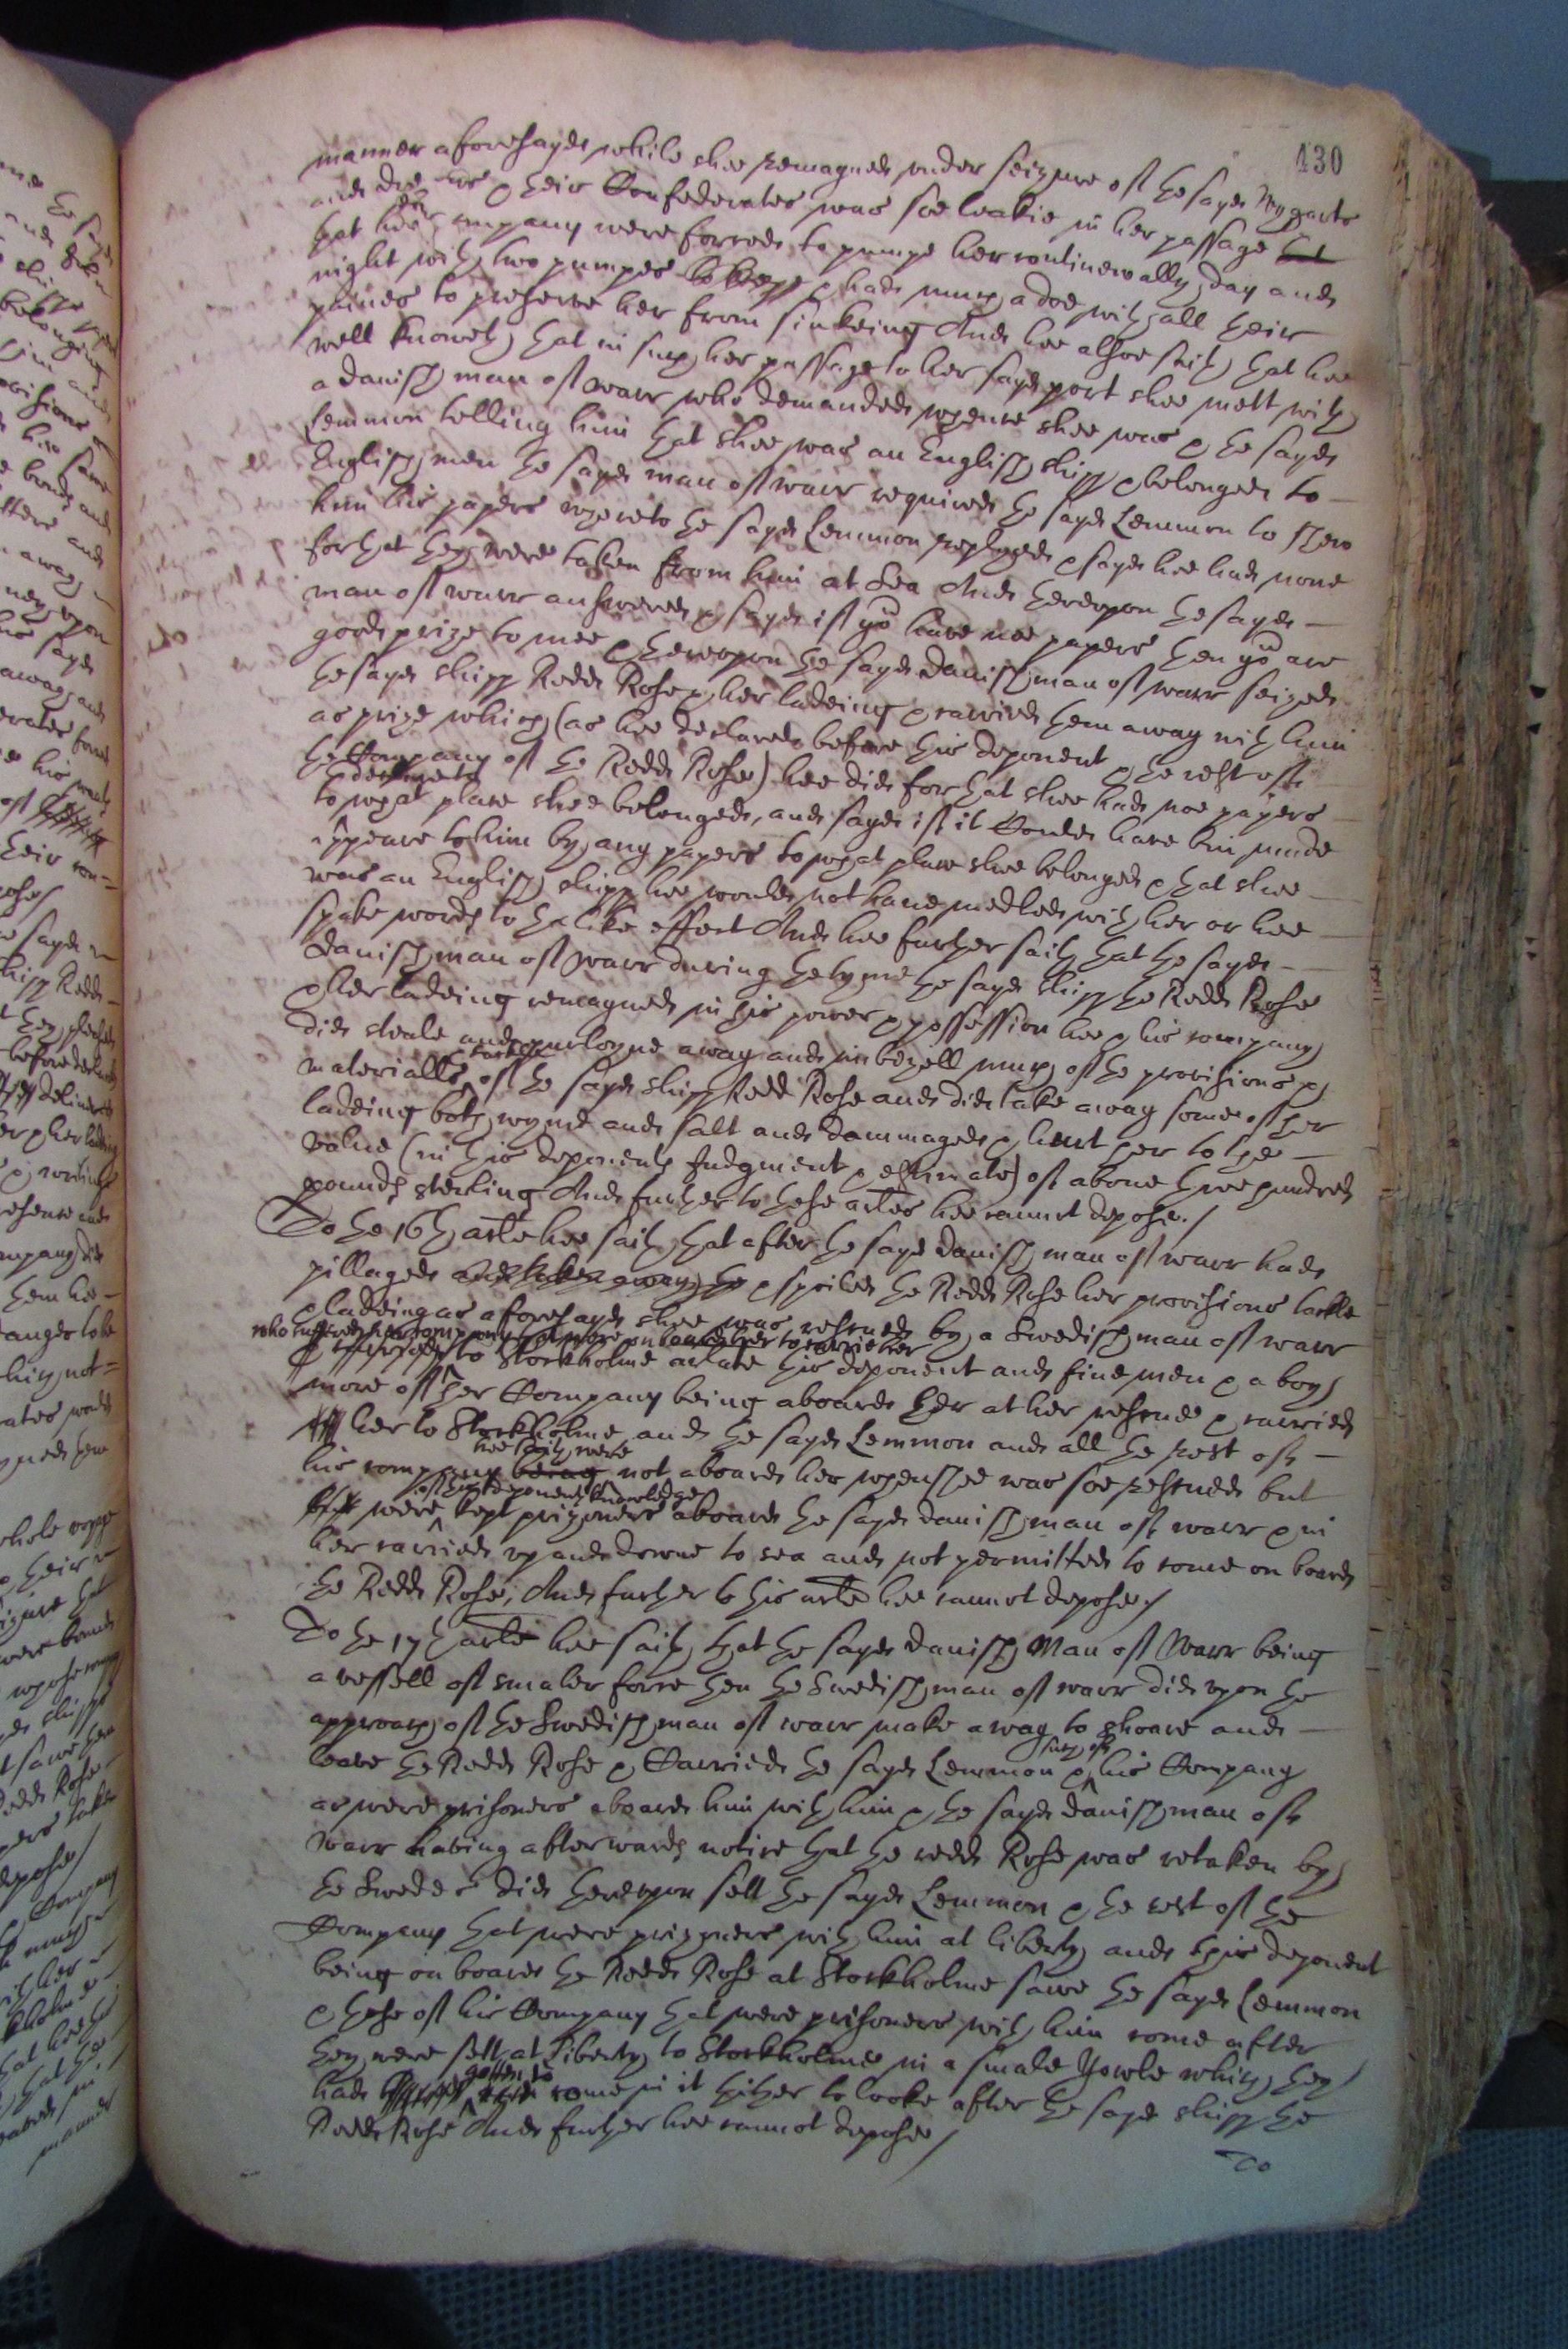 130
manner aforesayd while shee remayned under seizure of the sayd Mygarts
and Andrews & their Confederates was soe leakie in her passage
that her company were forced to pumpe her continewally day and
night with two pumpes to keepe & had much adoe with all their
paines to preserve her from sinkeing And hee alsoe saith that hee
well knoweth that in such her passage to her sayd port shee mett with
a danish man of warr who demanded whence shee was & the sayd
Lemmon telling him that shee was an English shipp & belonged to
English men the sayd man of warr required the sayd Lemmon to shew
him his papers whereto the sayd Lemmon replyed & sayd hee had none
for that they were taken from him at Sea And thereupon the sayd
man of warr answered & sayd if you have noe papers then you are
good prize to mee & thereupon the sayd danish man of warr seized
the sayd shipp Redd Rose & her ladeing & carried them away with him
as prize which (as hee declared before this deponent & the rest of
the Company of the Redd Rose) hee did for that shee had noe papers
to designe to
to what place shee belonged, and sayd if it Could have bin made
appeare to him by any papers to what place shee belonged & that shee
was an English shipp hee would not have medled with her or hee
spake words to the like effect And hee further saith that the sayd
danish man of warr during the tyme the sayd shipp the Redd Rose
& her ladeing remayned in his power & possession hee & his company
did steale and purloyne away and imbezell much of the provisions &
tackle
materialls of the sayd shipp Redd Rose and did take away some of her
ladeing both wyne and salt and dammaged & hurt her to the
value (in this deponents Judgment & estimate) of above three hundred
pounds sterling And further to these articles hee cannot depose./
To the 16th article hee saith that after the sayd danish man of warr had
pillaged and taken away the & spoiled the Redd Rose her provisions tackle
& ladeing as aforesayd shee was rescued by a Swedish man of warr
who suffered her company that were on board her to carrie her
to Stockholme arlate this deponent and five men & a boy
more of her Company being aboard her at her rescue & carried
her to Stockholme and the sayd Lemmon and all the rest of
hee saith were
his company being not aboard her when shee was soe rescued but
of this deponents knowledge
were kept prizoners aboard the sayd danish man of warr & in
her carried up and downe to sea and not permitted to come on board
the Redd Rose, And further to this article hee cannot depose./
To the 17th article hee saith that the sayd danish Man of Warr being
a vessell of smaler force then the Swedish man of warr did upon the
approach of the Swedish man of warr make away to shoare and
such of
leave the Redd Rose & Carried the sayd Lemmon & his Company
as were prisoners aboard him with him & the sayd danish man of
warr having afterwards notice that the redd Rose was retaken by
the Swede did thereupon sett the sayd Lemmon & the rest of the
Company that were prizoners with him at liberty and this deponent
being on board the Redd Rose at Stockholme sawe the sayd Lemmon
& those of his Company that were prisoners with him come after
they were sett at Liberty to Stockholme in a smale Yowle which they
gotten to
had come in it thither to looke after the sayd shipp the
Redd Rose And further hee cannot depose /
To